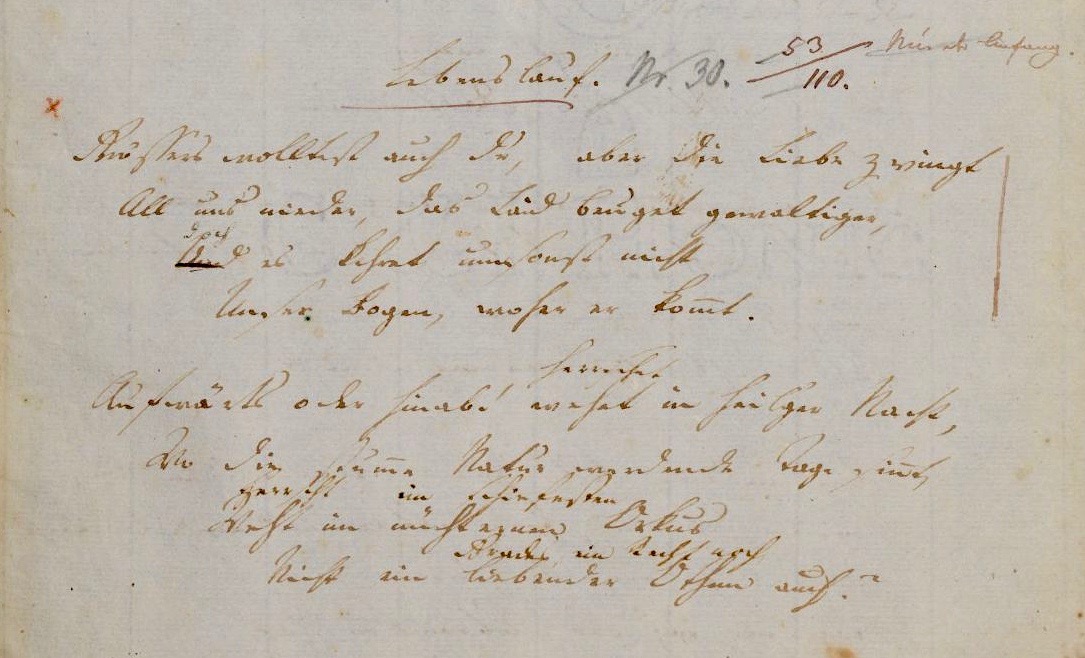 Lebenslauf. Nr. 30. 53/110.
Größers wolltest auch du, aber die Liebe zwingt
All uns nieder, das Laid beuget gewaltiger,
doch
Und es kehret umsonst nicht
Unser Bogen, woher er kom̄t.
herrschet
Aufwärts oder hinab! wehet in heilger Nacht,
Wo die stum̄e Natur werdende Tage sinnt,
Herrscht im schiefesten
Weht im nüchternen Orkus
Grades, ein Recht noch
Nicht ein liebender Othem auch?